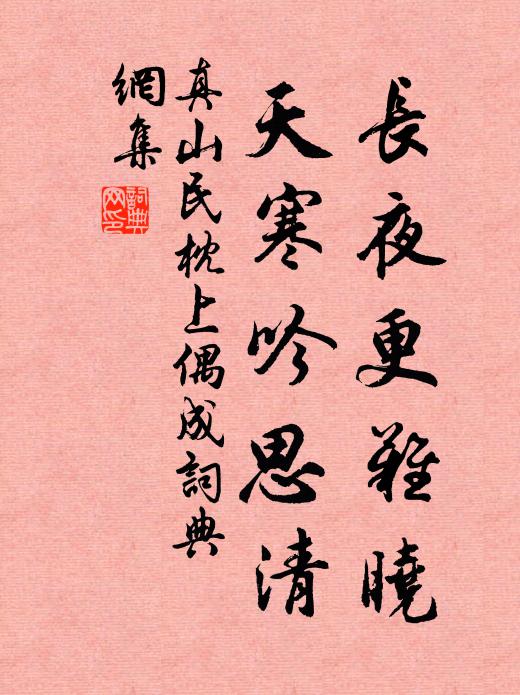 長夜更難曉
天寒吟思清
真山民枕上偶成詞典
網集
詞典
网印